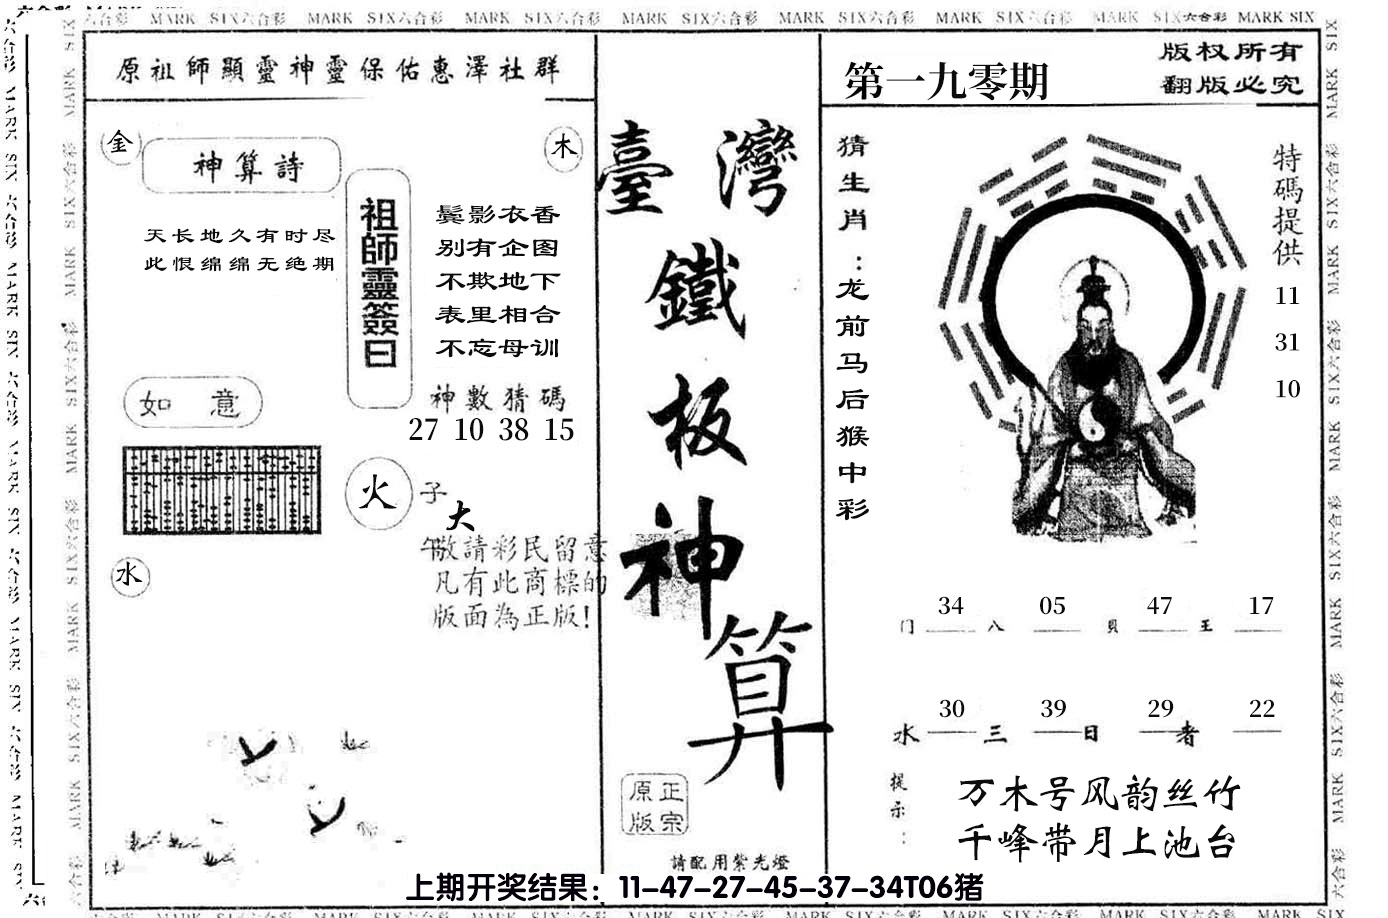 六合彩 MARK SIX六合彩 MARK SIX六合彩 MARK SIX六合彩 MARK SIX六合彩 MARK SIX六合彩 MARK SIX六合彩 MARK SIX六合彩 MARK SIX六合彩 MARK SIX
原祖師顯靈神靈保佑惠澤社群
金
神算詩
木
天长地久有时尽
此恨绵绵无绝期
祖師靈簽曰
鬓影衣香
别有企图
不欺地下
表里相合
不忘母训
如 意
神數猜碼
27 10 38 15
火
子
大
午
水
敬請彩民留意
凡有此商標的
版面為正版!
臺灣
鐵
板
神
算
正宗
原版
請配用紫光燈
第一九零期
版权所有
翻版必究
猜生肖：龙前马后猴中彩
特碼提供
11
31
10
34 05 47 17
门 八 貝 王
30 39 29 22
水 三 日 者
提示：
万木号风韵丝竹
千峰带月上池台
上期开奖结果：11-47-27-45-37-34T06猪